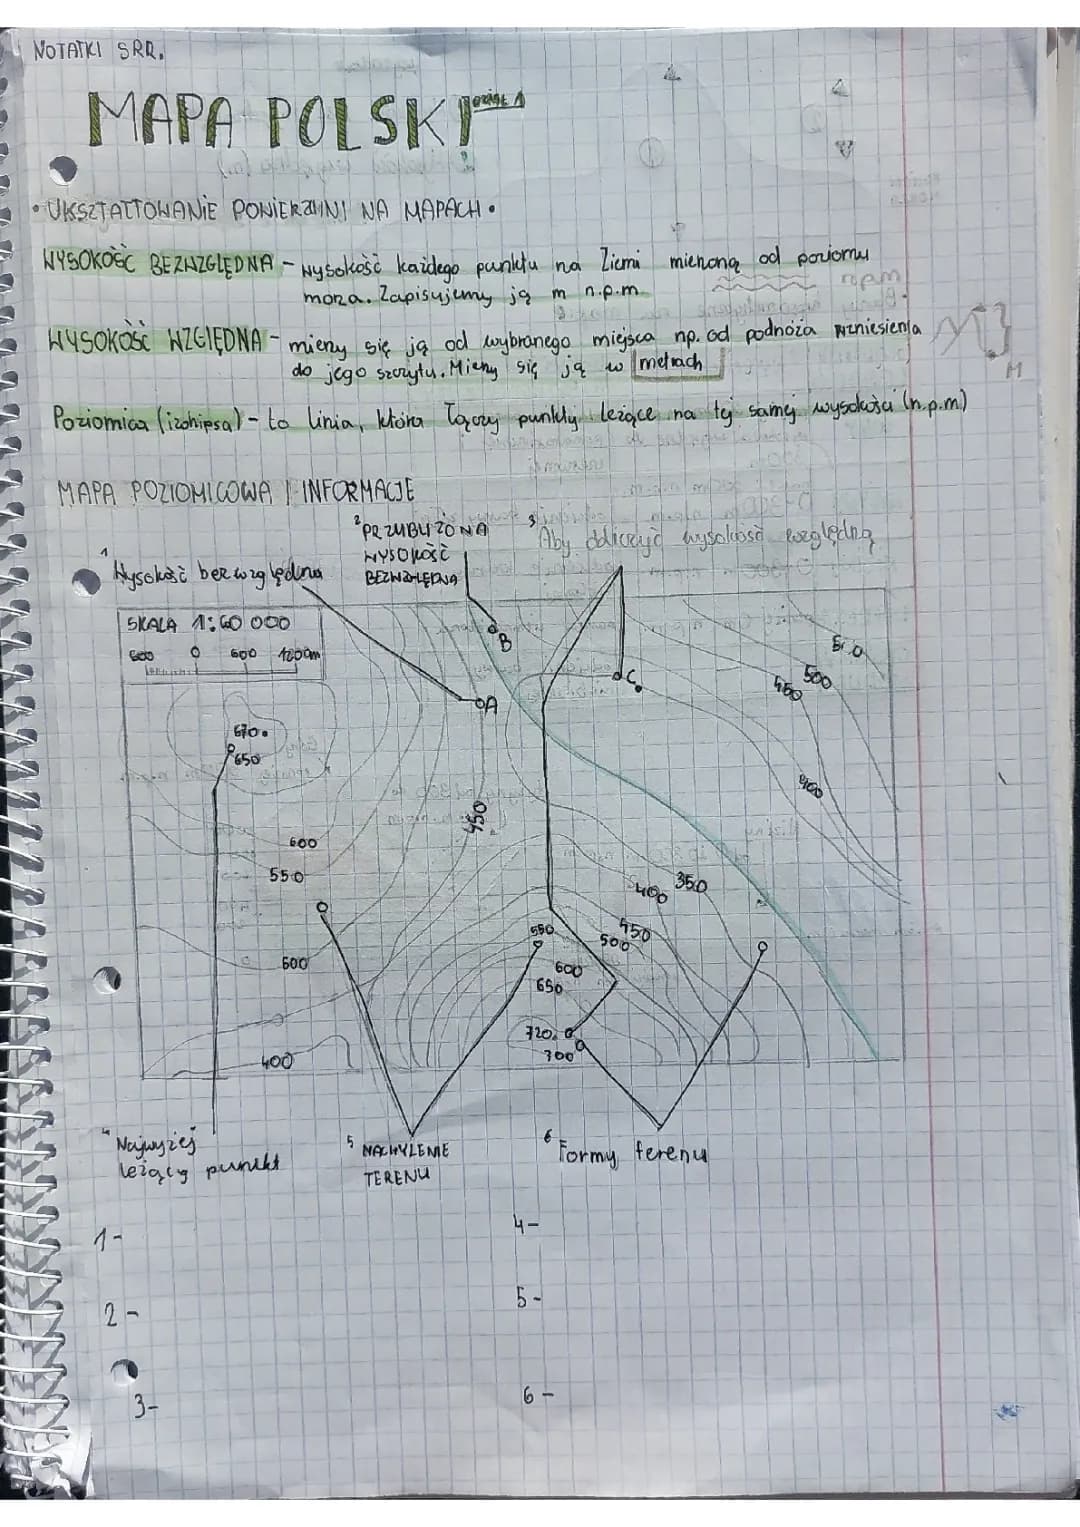 NOTATKI SRR.
MAPA POLSKI DZIAŁ 1
• UKSZTAŁTOWANIE POWIERZCHNI NA MAPACH •
WYSOKOŚĆ BEZWZGLĘDNA - wysokość każdego punktu na Ziemi mierzoną od poziomu
morza. Zapisujemy ją m n.p.m
WYSOKOŚĆ WZGLĘDNA - mierzy się ją od wybranego miejsca np. od podnóża wzniesienia
do jego szczytu. Mierzy się ją w metrach
M
Poziomica (izohipsa) - to linia, która łączy punkty leżące na tej samej wysokości (n.p.m.)
MAPA POZIOMICOWA I INFORMACJE
1 Wysokość bezwzględna
2 PRZYBLIŻONA
WYSOKOŚĆ
BEZWZGLĘDNA
3 Aby obliczyć wysokość względną
SKALA 1:60 000
600 0 600 1200m
B
A
C
500
450
400
670
650
600
550
450
350
400
450
500
550
600
650
600
720
700
400
4 Najwyżej
leżący punkt
5 NACHYLENIE
TERENU
6 Formy terenu
1-
2-
3-
4-
5-
6-